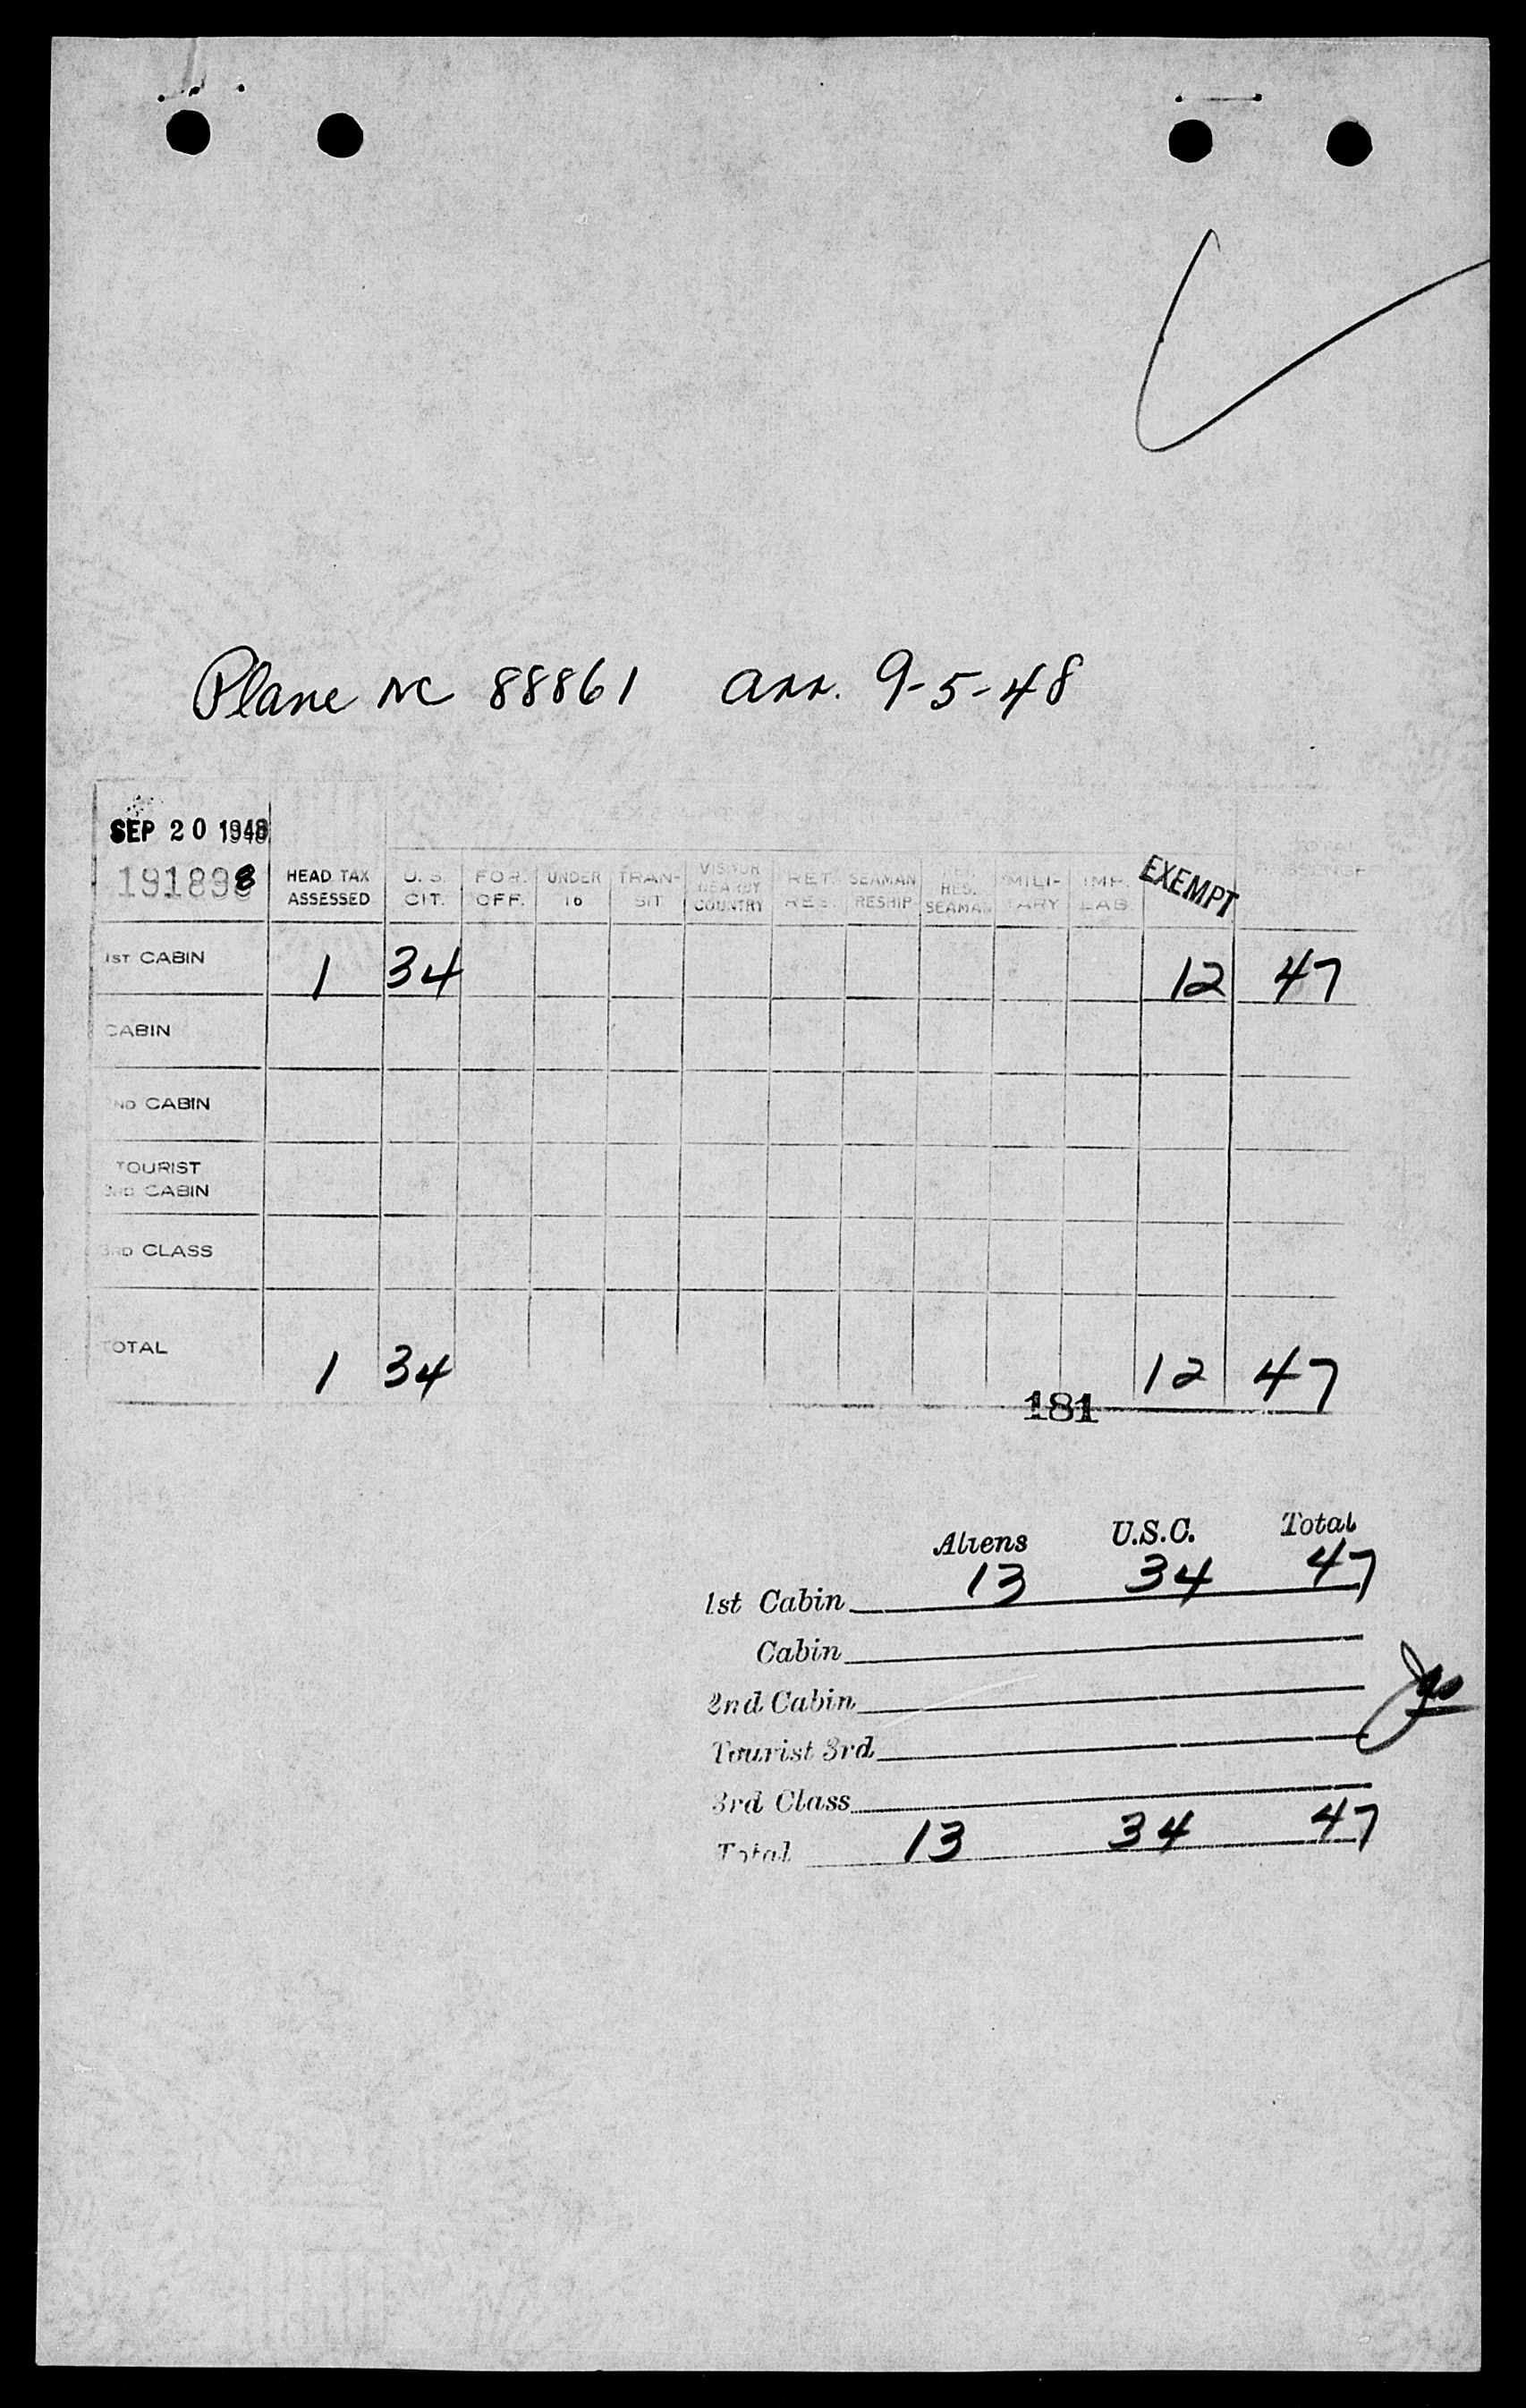 Plane NC 88861 arr. 9-5-48
SEP 20 1948
191898
HEAD TAX ASSESSED U. S. CIT. FOR. OFF. UNDER 16 TRAN- SIT VISITOR NEARBY COUNTRY RET. RES. SEAMAN RESHIP RES. SEAMAN MILI- TARY IMP. LAB EXEMPT TOTAL
1ST CABIN 1 34 12 47
CABIN
2ND CABIN
TOURIST
3RD CABIN
3RD CLASS
TOTAL 1 34 12 47
181
Aliens U.S.C. Total
1st Cabin 13 34 47
Cabin
2nd Cabin
Tourist 3rd
3rd Class
Total 13 34 47